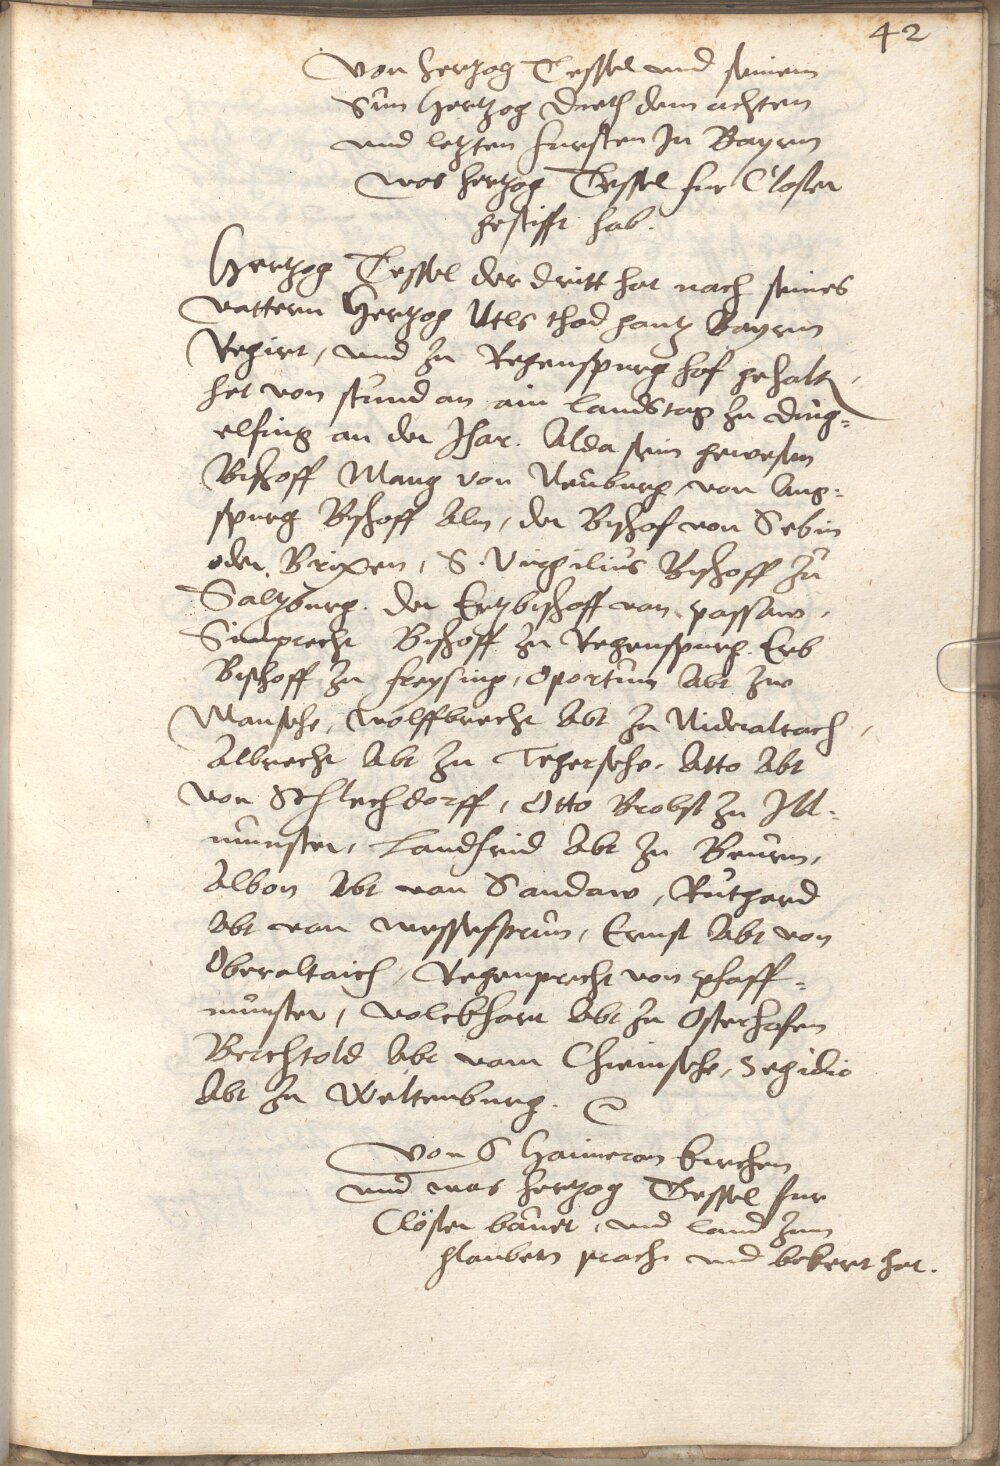 42
Von hertzog Tessel und seinem
Sun Hertzog Dieth dem achten
und letzten fursten In Bayrn
was hertzog Tessel fur Closter
gestifft hab.
Hertzog Tessel der dritt hat nach seines
vattern Hertzog Utls thod gantz Bayrn
Regirt, und zu Regenspurg hof gehalt,
het von stund an ain landstag zu Ding=
elfing an der Isar. Alda sein gewesen
Bischoff Mang von Neuburg, von Aug=
spurg Bischoff Alm, der Bischof von Sebin
oder Brixen, S. Virgilius Bischoff zu
Saltzburg. der Ertzbischoff von passaw,
Simprecht Bischoff zu Regenspurg. Erb
Bischoff zu freysing, Oportum Abt zw
Mansehe, Wolffbrecht Abt zu Nideraltach,
Albrecht Abt zu Tegersehe. Atto Abt
von Schlechdorff, Otto Brobst zu Ill=
munster, Landfrid Abt zu Beurn,
Albon Abt von Sandaw, Ruthard
Abt von wessesprun, Ernst Abt von
Oberaltaich, Regenprecht von pfaff=
munster, volckhart Abt zu Osterhofen
Berchtold Abt vom Chiemsehe, Segidio
Abt zu Weltenburg.
Von S Haimeran kirchen
und was hertzog Tessel fur
Clöster bauet, und land zum
glauben prach und bekert hat.